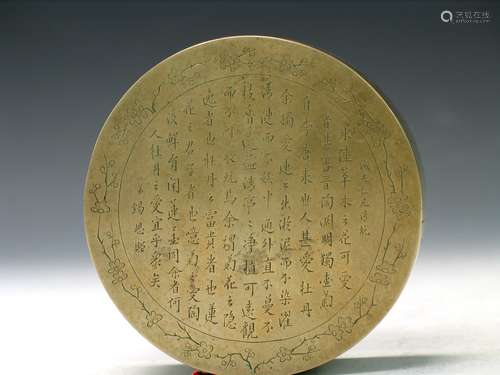 水陸草木之花可愛
者甚蕃晉陶淵明獨愛菊
自李唐來世人甚愛牡丹
余獨愛蓮之出淤泥而不染濯
清漣而不妖中通外直不蔓不
枝香遠益清亭亭淨植可遠觀
而不可褻玩焉余謂菊花之隱
逸者也牡丹之富貴者也蓮
花之君子者也噫菊之愛陶
後鮮有聞蓮之愛同余者何
人牡丹之愛宜乎衆矣